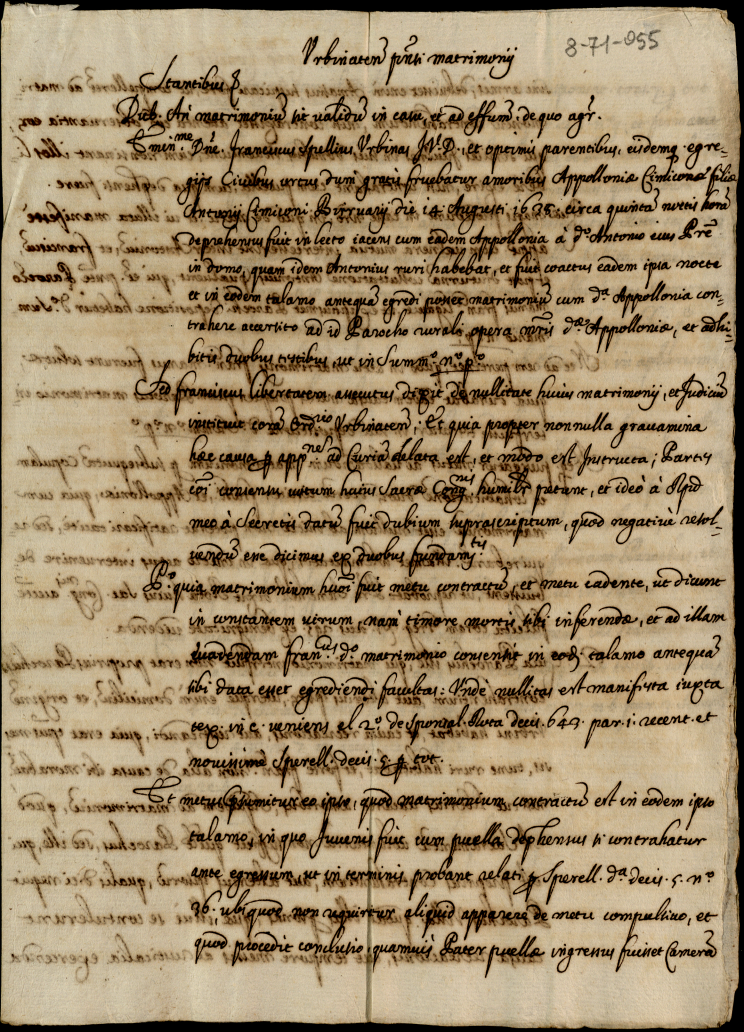 8-71-855
Urbinateñ pñsi matrimonij
Stantibus &
Dub. An matrimoniũ sit validũ in casu, et ad effũm, de quo agr̃.
Emin.me Dñe. Franciscus Spellius Urbinas J.V.D., et optimis parentibus, eisdemq. egre-
gijs Civibus ortus dum gratis fruebatur amoribus Appolloniæ Cimiconæ filiæ
Antonij Cimiconi Birruarij die 14. Augusti 1675. circa quintã noctis horã
deprehensus fuit in lecto iacens cum eadem Appollonia à d.o Antonio eius Prẽ
in domo, quam idem Antonius ruri habebat, et fuit coactus eadem ipsa nocte
et in eodem talamo antequã egredi posset matrimoniũ cum d.a Appollonia con-
trahere accersito ad id Parocho rurali opera mr̃is d.æ Appolloniæ, et adhi-
bitis duobus testibus, ut in Summ.o n.o p.o
Sed franciscus libertatem assecutus dixit de nullitate huius matrimonij, et Judiciũ
instituit corã Ord.rio Urbinateñ; Et quia propter nonnulla gravamina
hæc causa p app.nes ad Curiã delata est, et modo est Instructa; Partes
eõi consensu votum huius Sacræ Cong.nis humilr̃ petunt, et ideò à Rp̃d
meo à Secretis datũ fuit dubium suprascriptum, quod negativè resol-
vendũ esse dicimus ex duobus fundam.tis
P.o quia matrimonium hm̃oi fuit metu contractũ, et metu cadente, ut dicunt
in constantem virum, nam timore mortis sibi inferendæ, et ad illam
evadendam fran.cus d.o matrimonio consensit in eod. talamo antequã
sibi data esset egrediendi facultas: Undè nullitas est manifesta iuxta
tex. in c. veniens el 2.o de sponsal. Rota decis. 643. par. 1. recent. et
novissimè Sperell. decis. 5. p tot.
Et metus p̃sumitur eo ipso, quod matrimonium contractũ est in eodem ipso
talamo, in quo Juvenis fuit cum puella dep̃hensus si contrahatur
ante egressum, ut in terminis probant relati p Sperell. d.a decis. 5. n.o
36. ubi quod non requiritur aliquid apparere de metu compulsivo, et
quod procedit conclusio, quamvis Pater puellæ ingressus fuisset Camerã